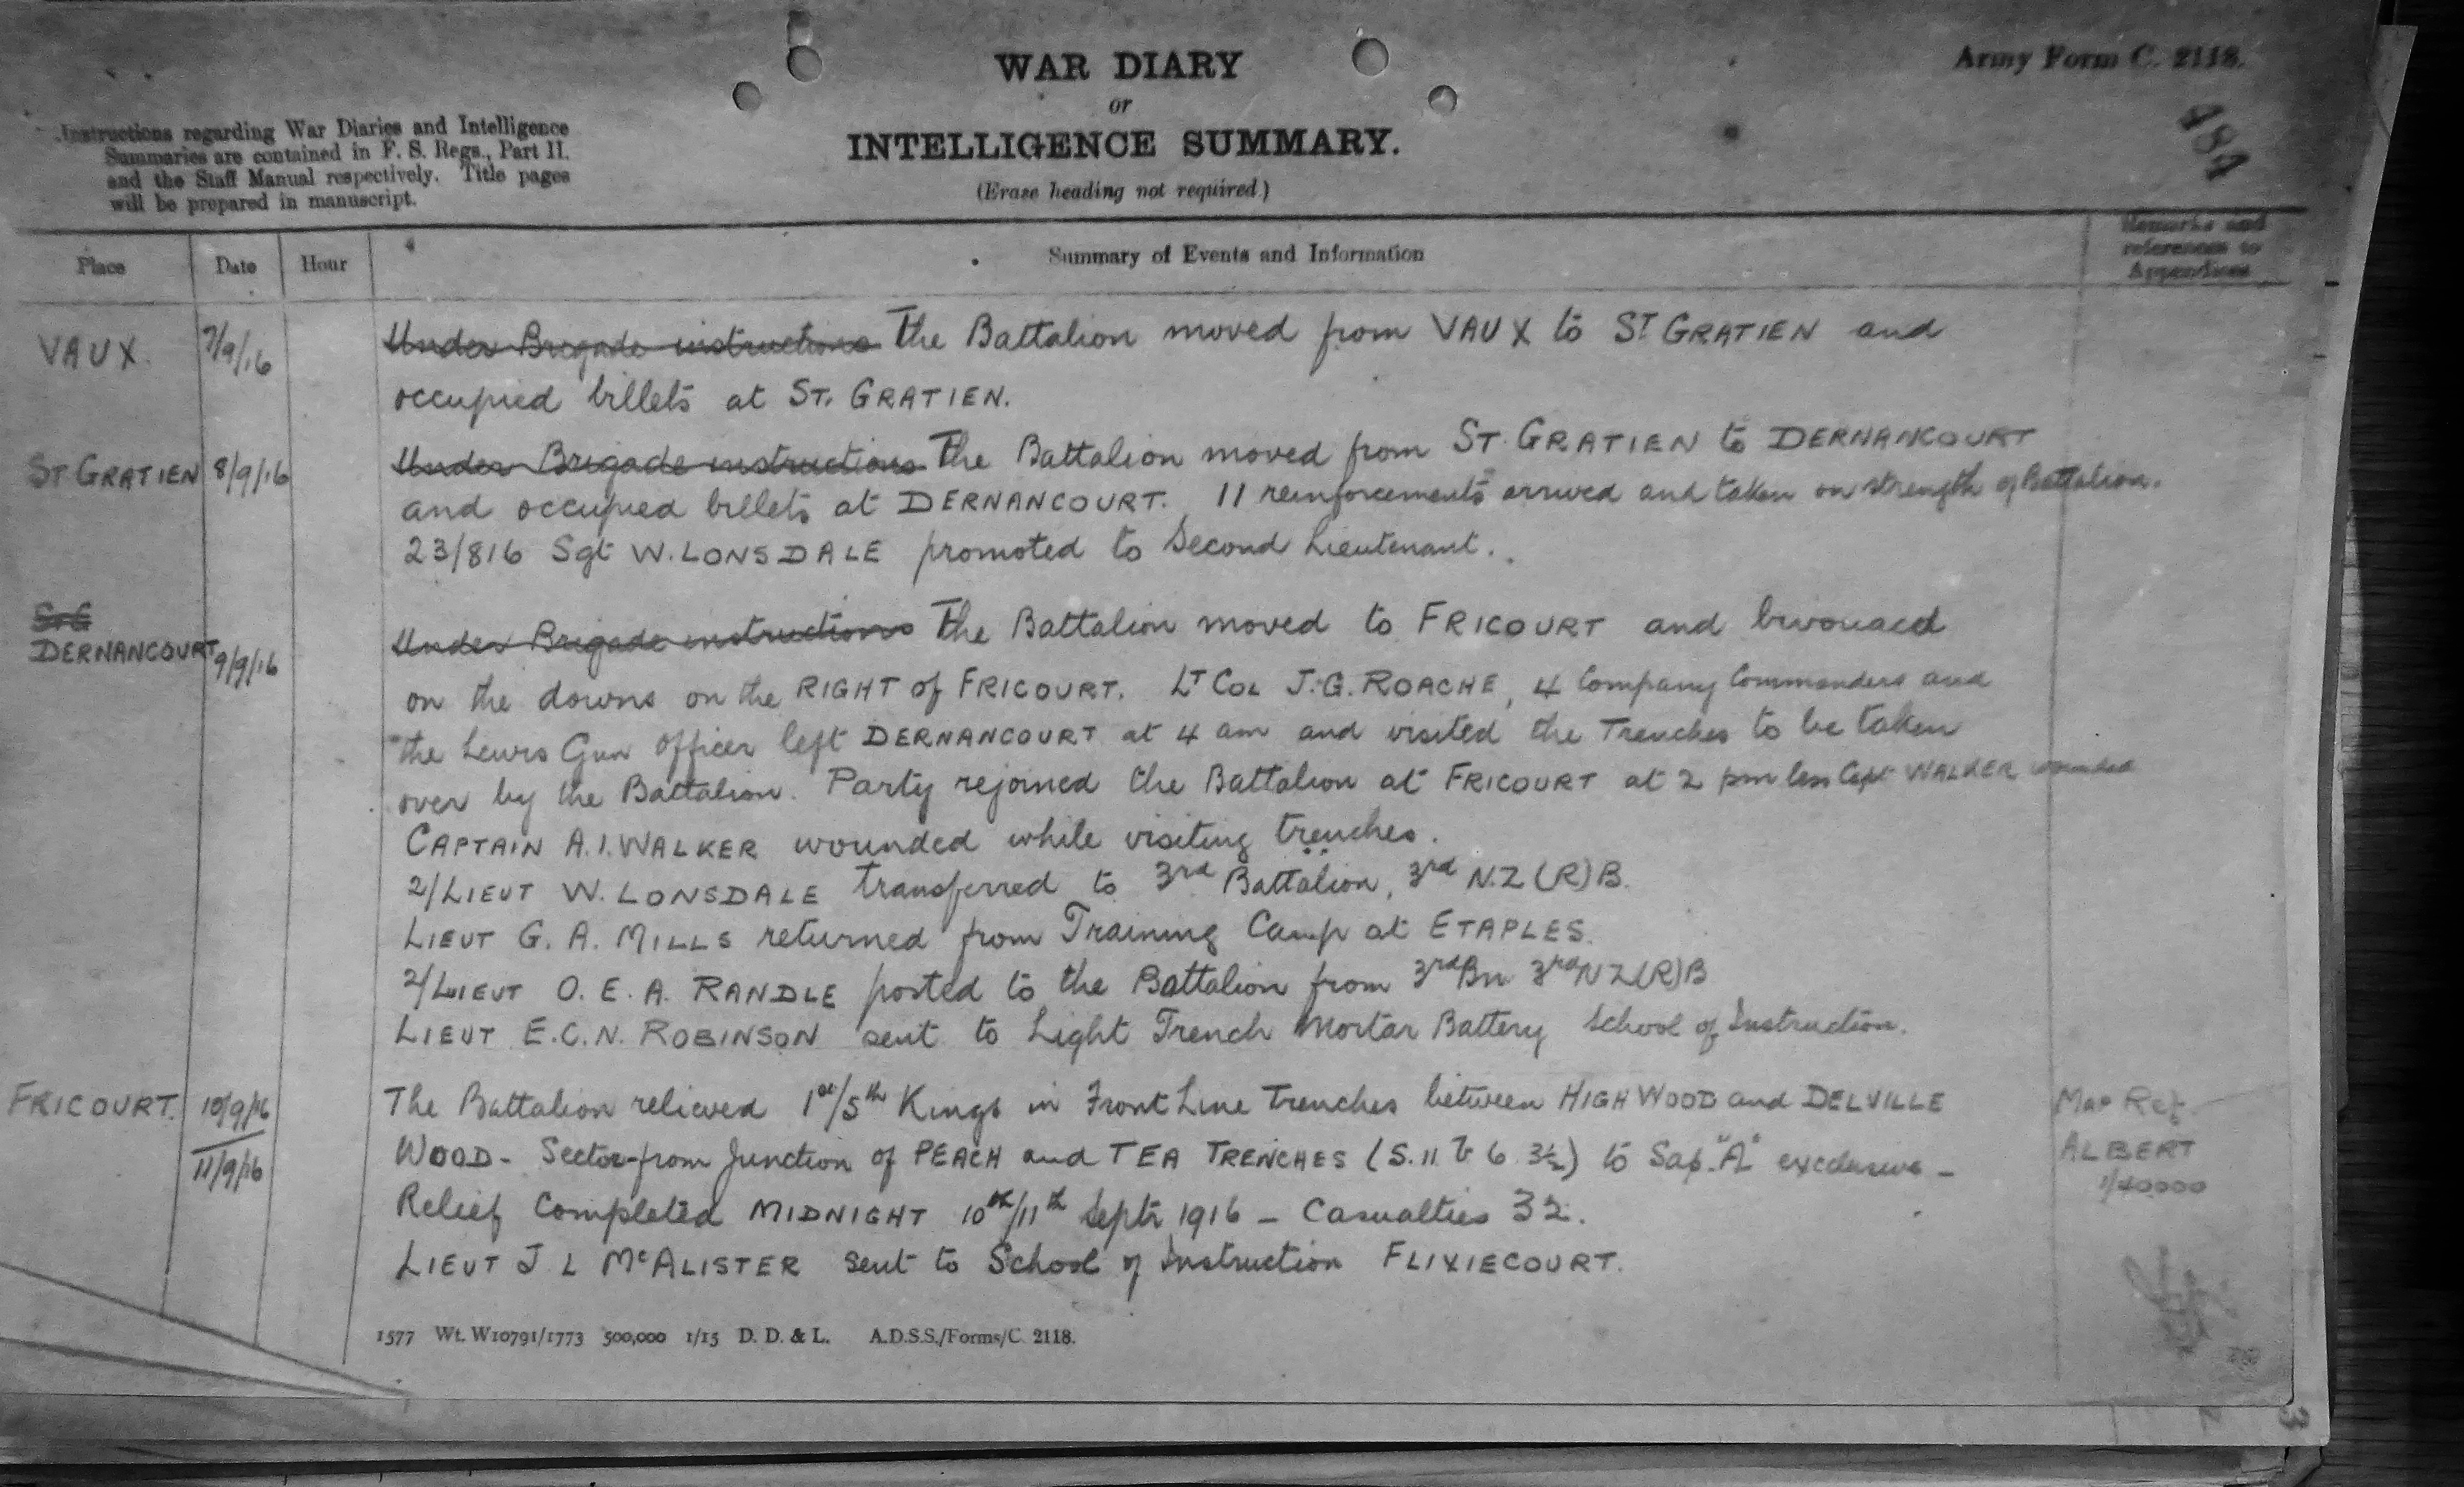 WAR DIARY
or
INTELLIGENCE SUMMARY.
(Erase heading not required.)
Army Form C. 2118.
484
Instructions regarding War Diaries and Intelligence
Summaries are contained in F. S. Regs., Part II.
and the Staff Manual respectively. Title pages
will be prepared in manuscript.
Place Date Hour Summary of Events and Information
Remarks and
references to
Appendices
VAUX. 7/9/16 Under Brigade instructions The Battalion moved from VAUX to ST GRATIEN and
occupied billets at ST. GRATIEN.
ST GRATIEN 8/9/16 Under Brigade instructions The Battalion moved from ST. GRATIEN to DERNANCOURT
and occupied billets at DERNANCOURT. 11 reinforcements arrived and taken on strength of Battalion.
23/816 Sgt W. LONSDALE promoted to Second Lieutenant.
St G
DERNANCOURT 9/9/16 Under Brigade instructions The Battalion moved to FRICOURT and bivouacd
on the downs on the RIGHT of FRICOURT. LT COL J.G. ROACHE, 4 Company Commanders and
the Lewis Gun Officer left DERNANCOURT at 4 am and visited the Trenches to be taken
over by the Battalion. Party rejoined the Battalion at FRICOURT at 2 pm less Capt WALKER wounded
CAPTAIN A.I. WALKER wounded while visiting trenches.
2/LIEUT W. LONSDALE transferred to 3rd Battalion, 3rd N.Z (R) B.
LIEUT G. A. MILLS returned from Training Camp at ETAPLES.
2/LIEUT O. E. A. RANDLE posted to the Battalion from 3rd Bn 3rd NZ(R)B
LIEUT E.C.N. ROBINSON sent to Light Trench Mortar Battery School of Instruction.
FRICOURT. 10/9/16 The Battalion relieved 1st/5th Kings in Front Line Trenches between HIGH WOOD and DELVILLE
11/9/16 WOOD - Sector from Junction of PEACH and TEA TRENCHES (S.11 b 6 3½) to Sap "A" exclusive -
Relief Completed MIDNIGHT 10th/11th Septr 1916 - Casualties 32.
LIEUT J L McALISTER sent to School of Instruction FLIXIECOURT.
Map Ref.
ALBERT
1/40000
1577 Wt. W10791/1773 500,000 1/15 D. D. & L. A.D.S.S./Forms/C. 2118.